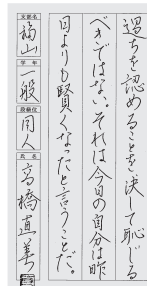 過ちを認めることを、決して恥じる
べきではない。それは今日の自分は昨
日よりも賢くなったと言うことだ。
支部名
福山
学年
一般
段級位
同人
氏名
高橋直美